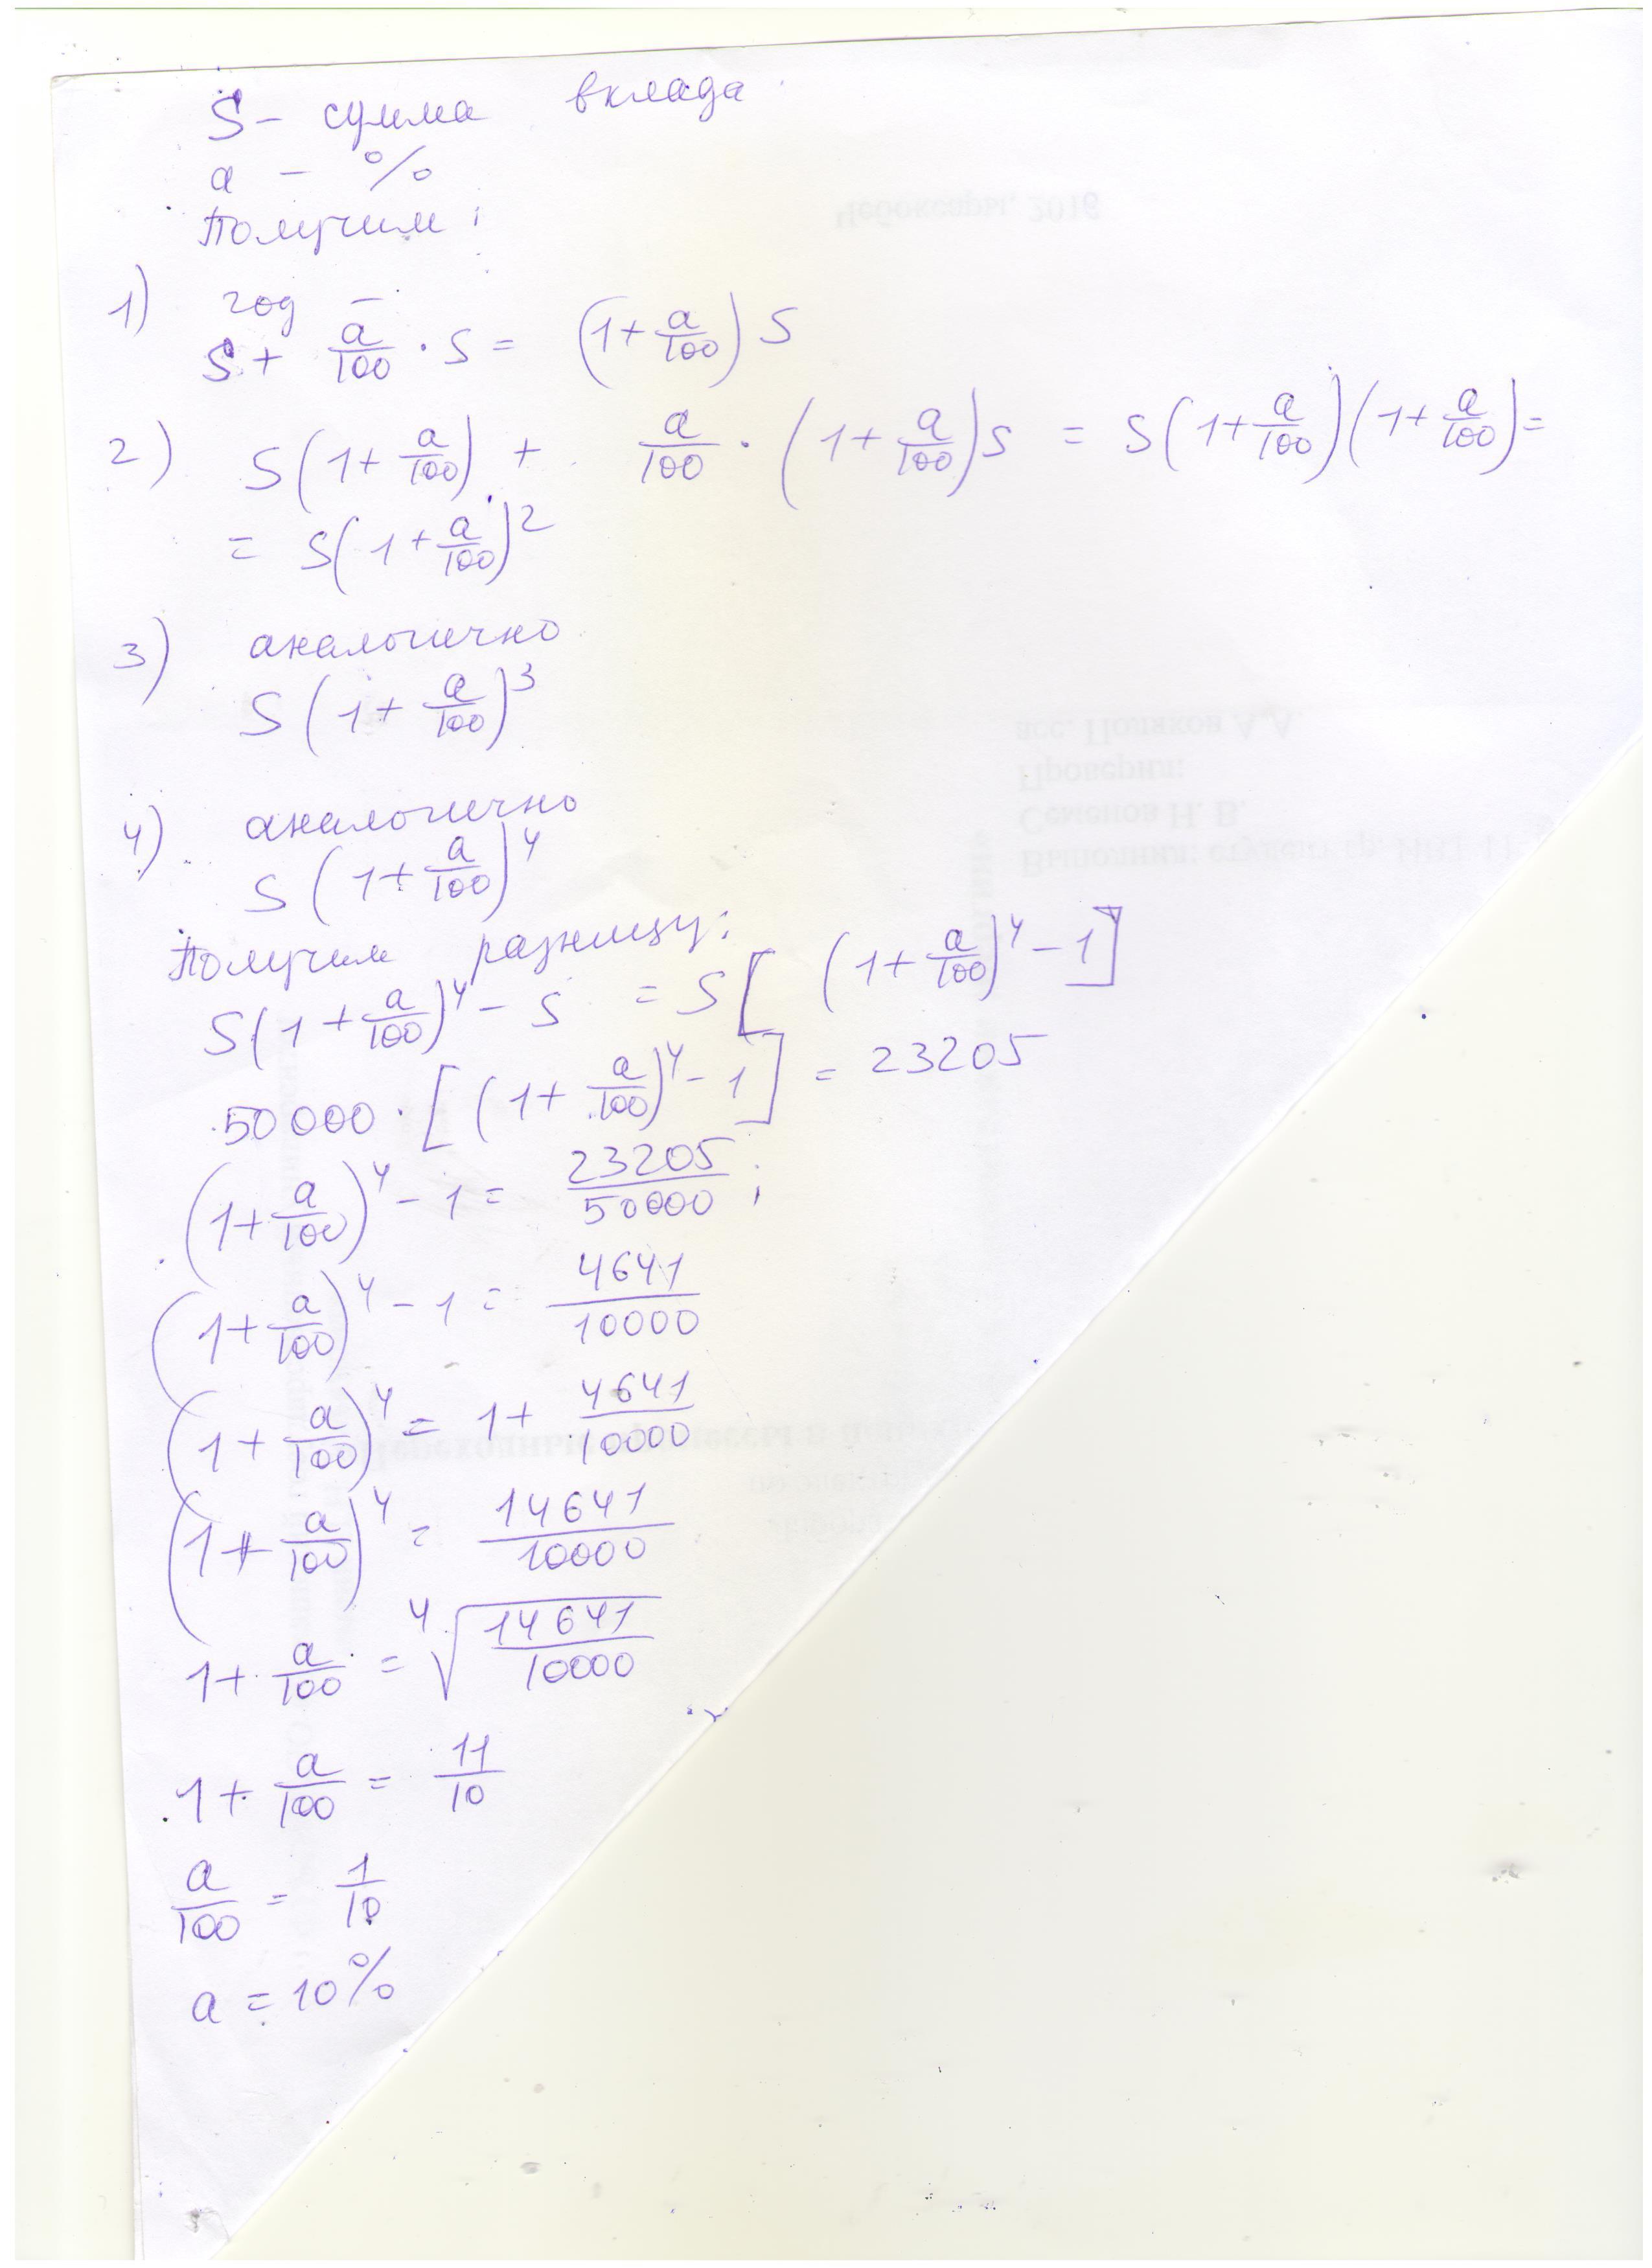 S – сумма вклада
a – %
Получим:
1) год –
S + a/100 · S = (1 + a/100) S
2) S(1 + a/100) + a/100 · (1 + a/100)S = S(1 + a/100)(1 + a/100) =
= S(1 + a/100)^2
3) аналогично
S(1 + a/100)^3
4) аналогично
S(1 + a/100)^4
Получим разницу:
S(1 + a/100)^4 – S = S[(1 + a/100)^4 – 1]
50000 · [(1 + a/100)^4 – 1] = 23205
(1 + a/100)^4 – 1 = 23205/50000;
(1 + a/100)^4 – 1 = 4641/10000
(1 + a/100)^4 = 1 + 4641/10000
(1 + a/100)^4 = 14641/10000
1 + a/100 = ⁴√(14641/10000)
1 + a/100 = 11/10
a/100 = 1/10
a = 10%
Чебоксары, 2016
асс. Поляков А.А.
Проверил:
Семенов Н. В.
Выполнил: студент гр.